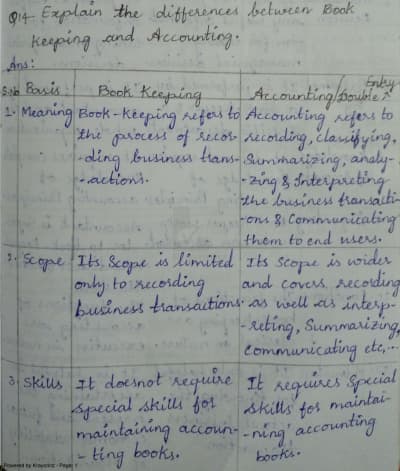 Q14- Explain the differences between Book
Keeping and Accounting.
Ans:
S.No Basis Book Keeping Accounting/Double Entry
1. Meaning Book-Keeping refers to Accounting refers to
the process of recor- recording, classifying,
-ding business trans- Summarizing, analy-
-actions. -zing & Interpreting
the business transacti-
-ons & Communicating
them to end users.
2. Scope Its Scope is limited Its Scope is wider
only to recording and covers recording
business transactions. as well as interp-
-reting, Summarizing,
communicating etc,...
3. Skills It doesnot require It requires Special
Special skills for skills for maintai-
maintaining accoun- -ning accounting
-ting books. books.
Powered by Kroyonics - Page: 1